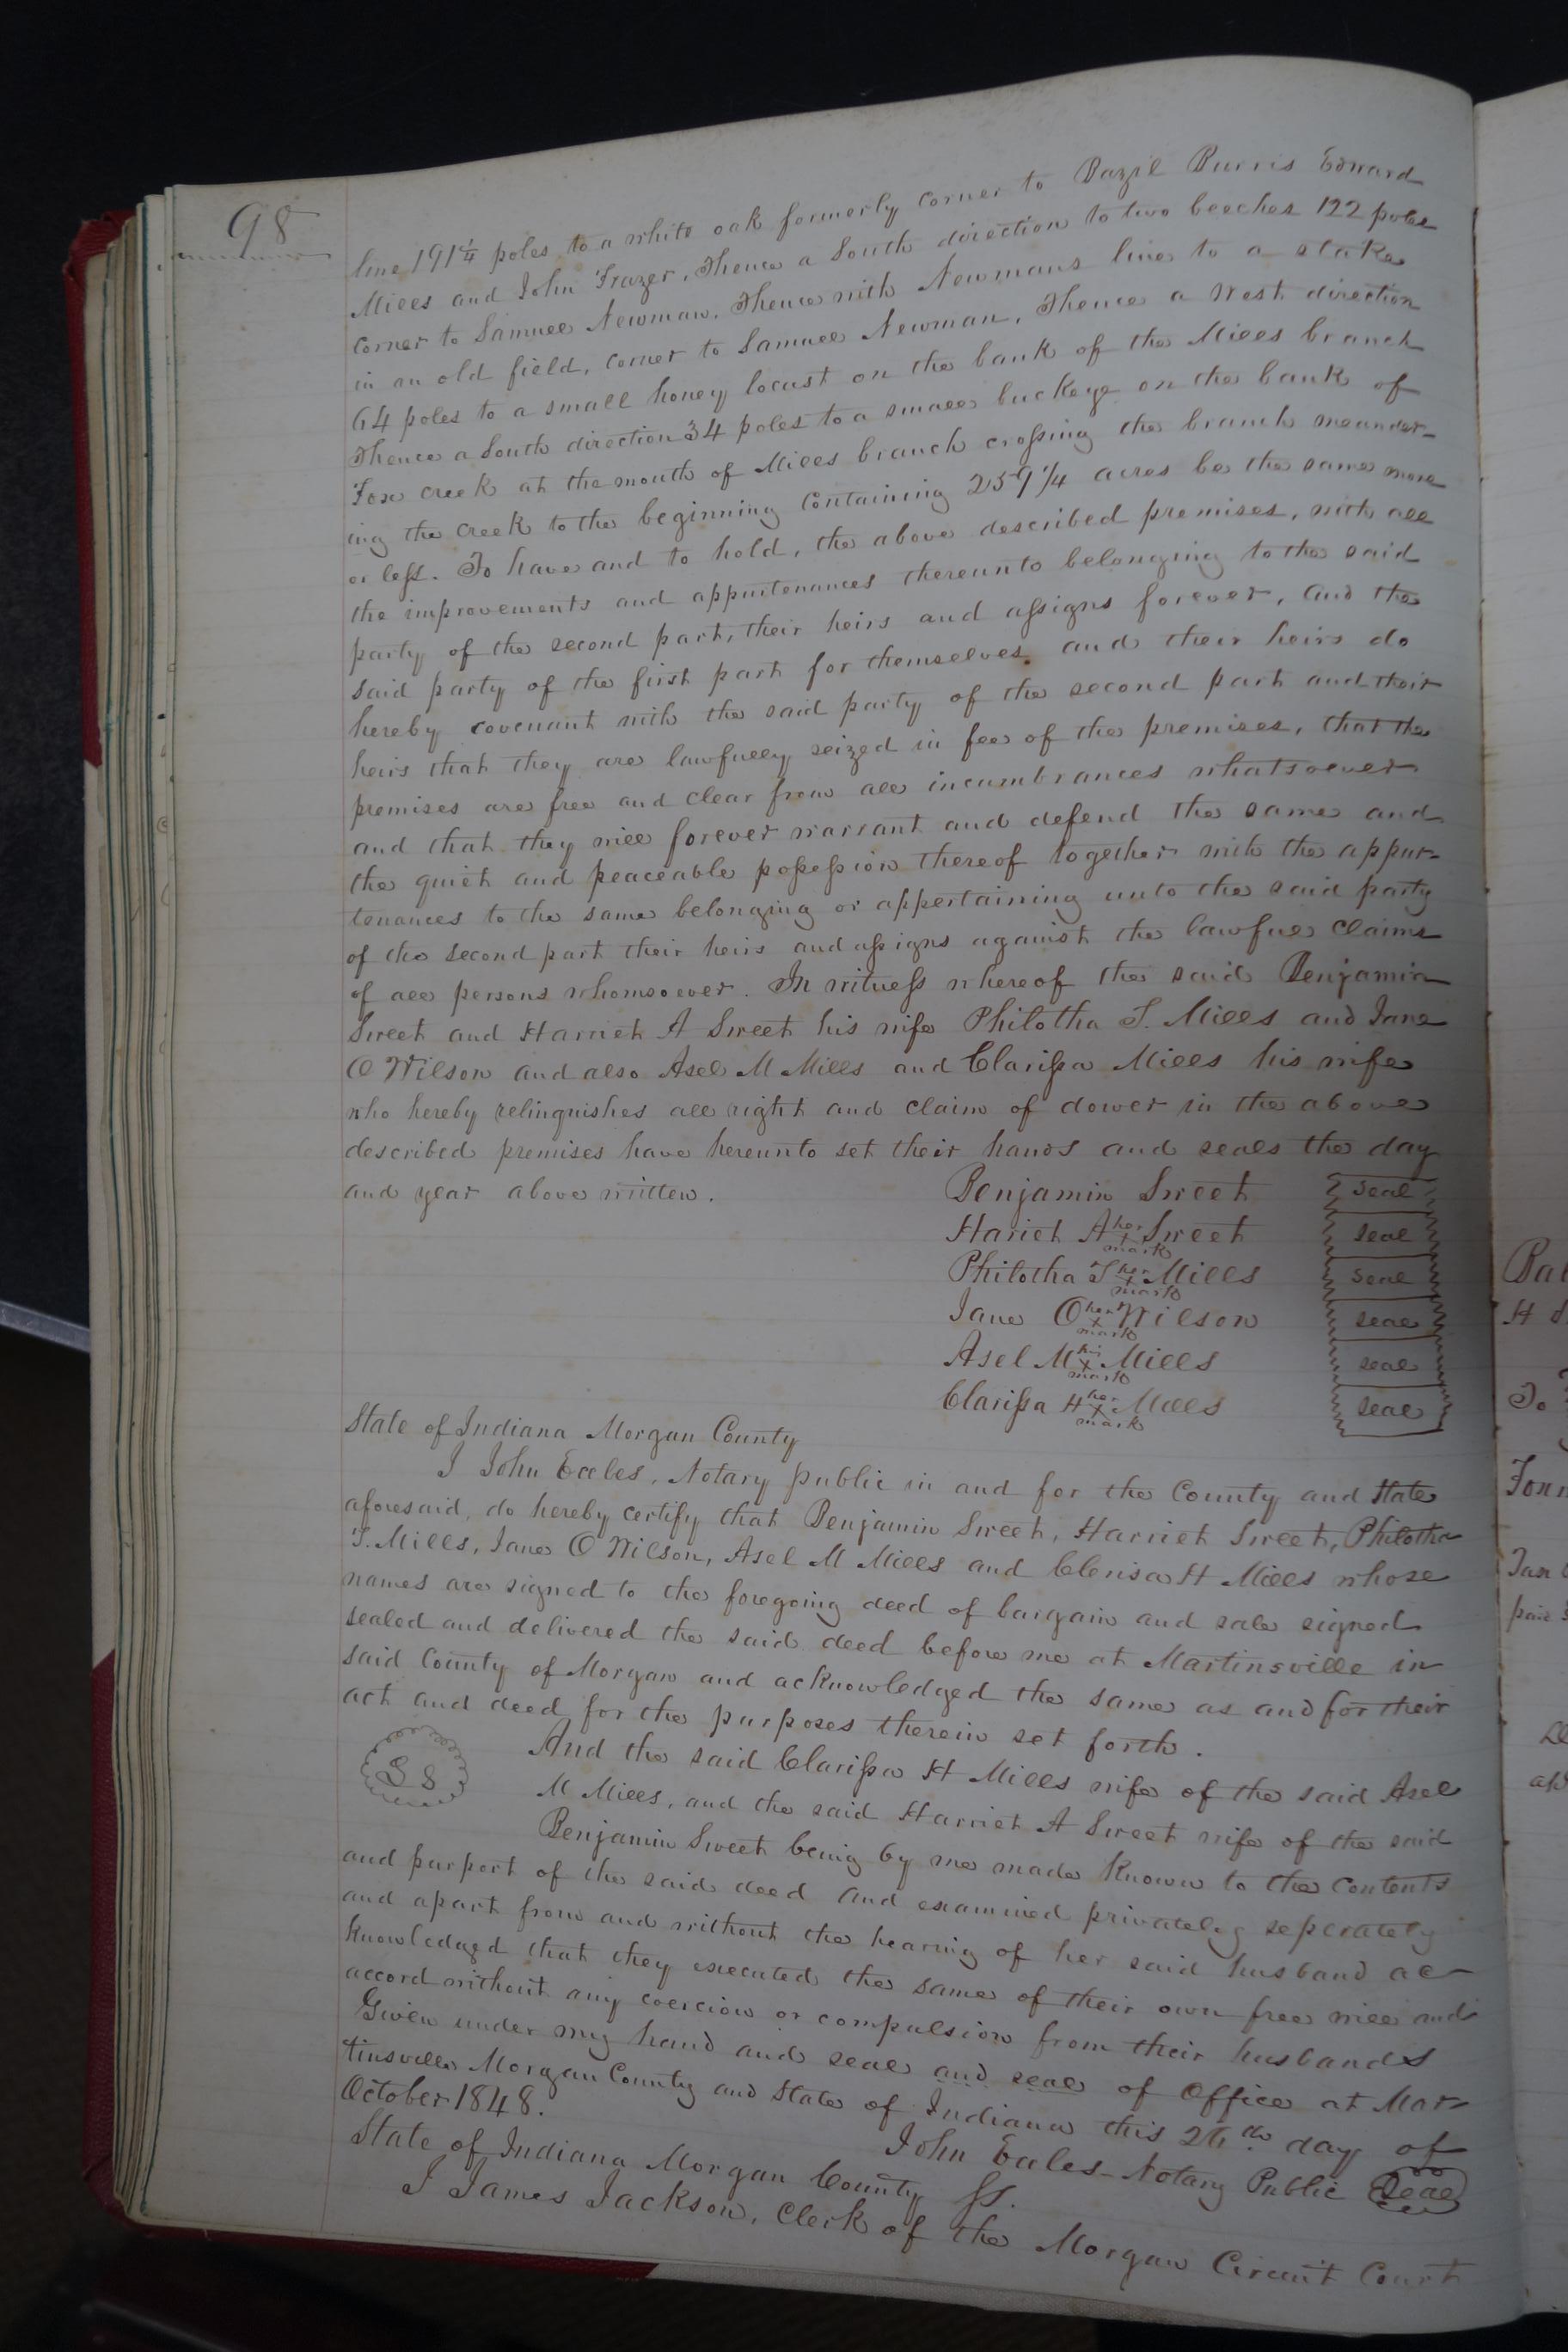 98
line 191 1/4 poles to a white oak formerly corner to Bazil Burris Edward
Mills and John Frazer, Thence a South direction to two beeches 122 poles
corner to Samuel Newman. Thence with Newmans line to a stake
in an old field, corner to Samuel Newman, Thence a West direction
64 poles to a small honey locust on the bank of the Mills branch
Thence a South direction 34 poles to a small buckeye on the bank of
Fox creek at the mouth of Mills branch crossing the branch meander-
ing the creek to the beginning containing 259 1/4 acres be the same more
or less. To have and to hold, the above described premises, with all
the improvements and appurtenances thereunto belonging to the said
party of the second part, their heirs and assigns forever, and the
said party of the first part for themselves and their heirs do
hereby covenant with the said party of the second part and their
heirs that they are lawfully seized in fee of the premises, that the
premises are free and clear from all incumbrances whatsoever
and that they will forever warrant and defend the same and
the quiet and peaceable possession thereof together with the appur-
tenances to the same belonging or appertaining unto the said party
of the second part their heirs and assigns against the lawful claims
of all persons whomsoever. In witness whereof the said Benjamin
Sweet and Harriet A Sweet his wife Philotha T. Mills and Jane
O Wilson and also Asel M Mills and Clarissa Mills his wife
who hereby relinquishes all right and claim of dower in the above
described premises have hereunto set their hands and seals the day
and year above written. Benjamin Sweet seal
Hariet A her x mark Sweet seal
Philotha T her x mark Mills seal
Jane O her x mark Wilson seal
Asel M his x mark Mills seal
Clarissa H her x mark Mills seal
State of Indiana Morgan County
I John Eales, Notary public in and for the County and State
aforesaid, do hereby certify that Benjamin Sweet, Harriet Sweet, Philotha
T. Mills, Jane O Wilson, Asel M Mills and Clerisa H Mills whose
names are signed to the foregoing deed of bargain and sale signed
sealed and delivered the said deed before me at Martinsville in
said County of Morgan and acknowledged the same as and for their
act and deed for the purposes therein set forth.
And the said Clarissa H Mills wife of the said Asel
M Mills, and the said Harriet A Sweet wife of the said
Benjamin Sweet being by me made known to the contents
and purport of the said deed and examined privately seperately
and apart from and without the hearing of her said husband ac-
knowledged that they executed the same of their own free will and
accord without any coercion or compulsion from their husbands
Given under my hand and seal and seal of Office at Mar-
tinsville Morgan County and State of Indiana this 26th day of
October 1848.
John Eales Notary Public Seal
State of Indiana Morgan County SS.
I James Jackson, Clerk of the Morgan Circuit Court